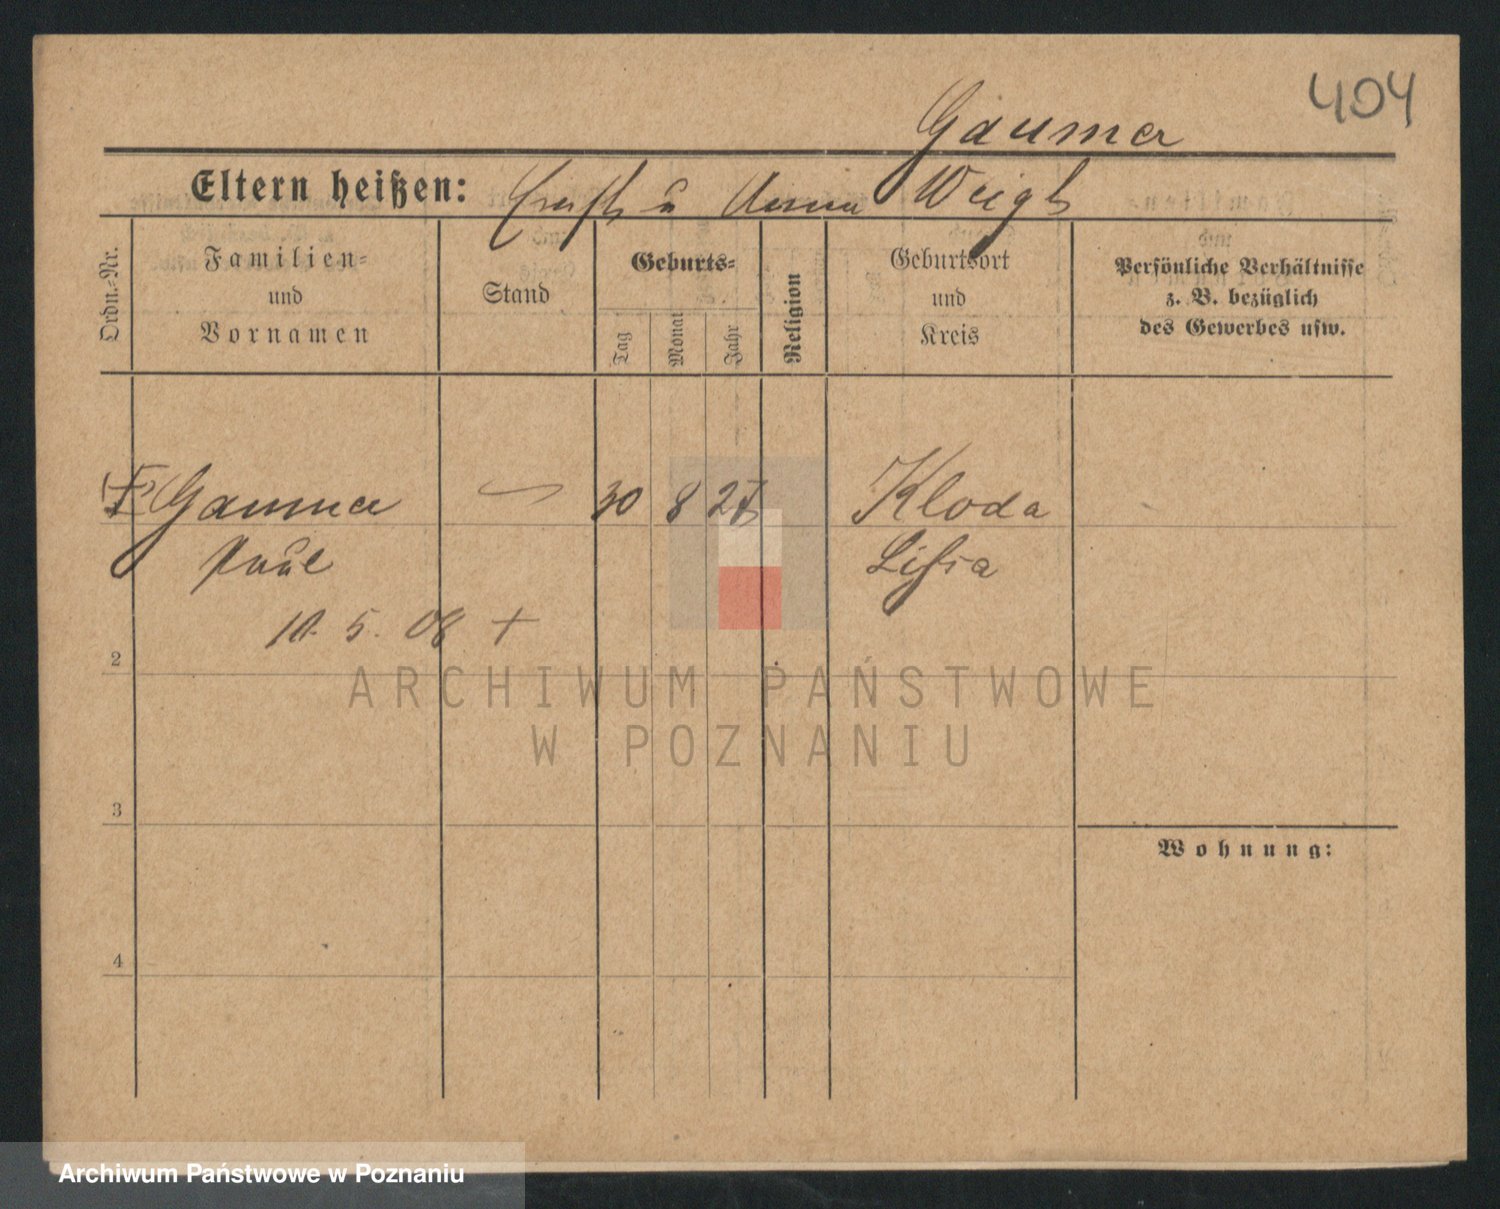 404
Gaumer
Eltern heißen: Ernst u Anna Weigt
Ordn.-Nr.
Familien-
und
Vornamen
Stand
Geburts-
Tag
Monat
Jahr
Religion
Geburtsort
und
Kreis
Persönliche Verhältnisse
z. B. bezüglich
des Gewerbes usw.
Gaumer 30 8 27 Kloda
Paul Lissa
10. 5. 08 +
2
ARCHIWUM PAŃSTWOWE
W POZNANIU
3
Wohnung:
4
Archiwum Państwowe w Poznaniu